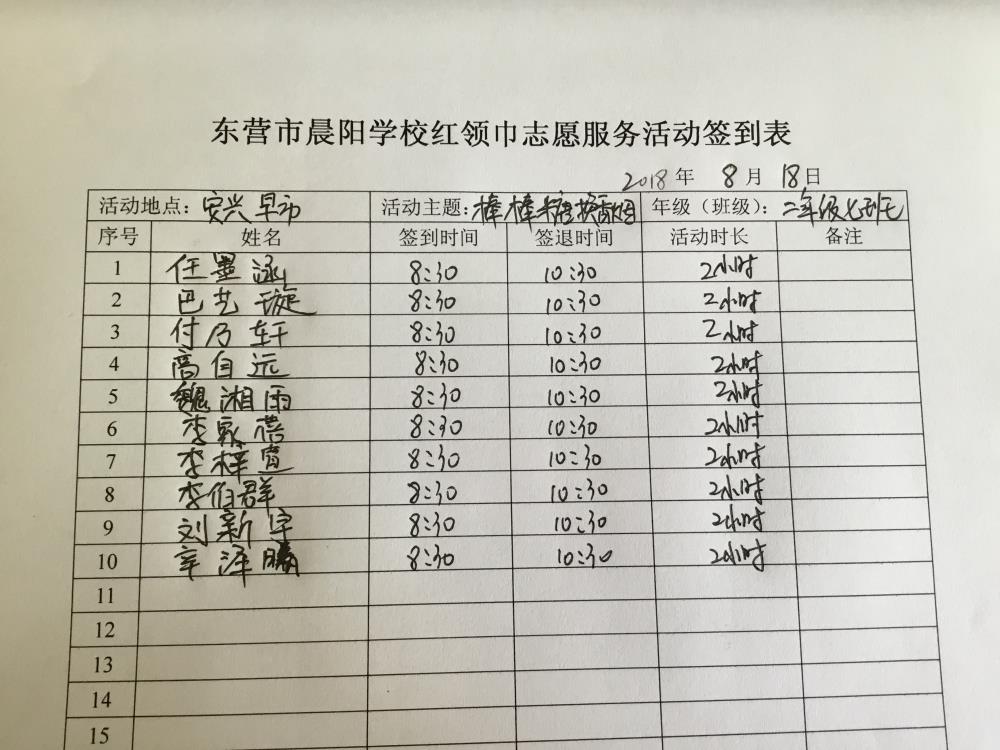 东营市晨阳学校红领巾志愿服务活动签到表
2018年 8月 18日
活动地点：安兴早市 活动主题：棒棒糖换香烟 年级（班级）：二年级七班
序号 姓名 签到时间 签退时间 活动时长 备注
1 任墨涵 8:30 10:30 2小时
2 巴艺璇 8:30 10:30 2小时
3 付乃轩 8:30 10:30 2小时
4 高自远 8:30 10:30 2小时
5 魏湘雨 8:30 10:30 2小时
6 李家蓓 8:30 10:30 2小时
7 李梓萱 8:30 10:30 2小时
8 李伯群 8:30 10:30 2小时
9 刘新宇 8:30 10:30 2小时
10 辛泽鹏 8:30 10:30 2小时
11
12
13
14
15